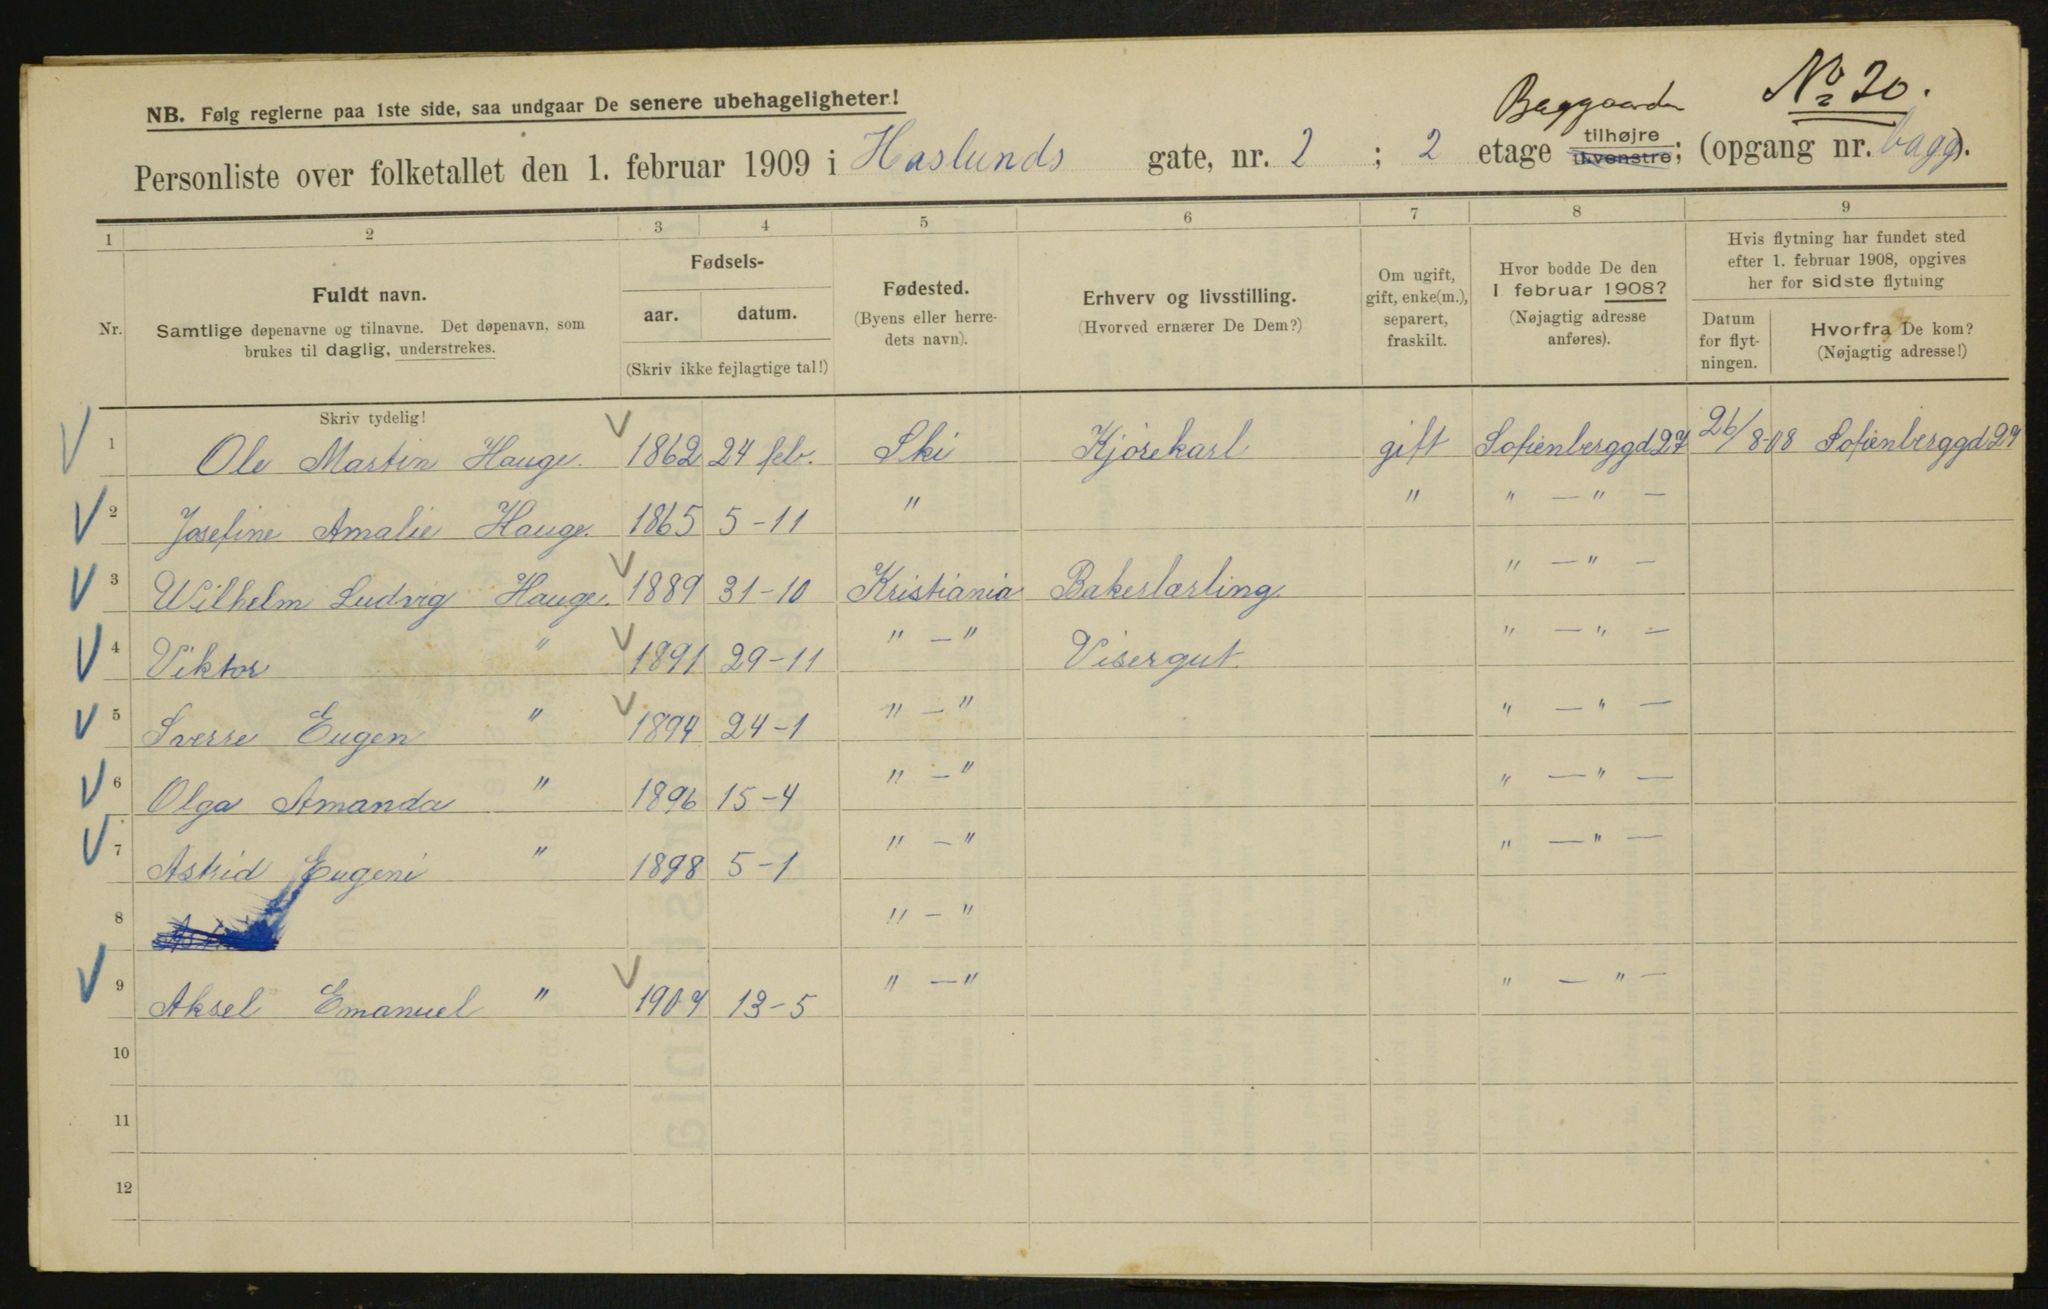 Baggaarden № 20.
NB. Følg reglerne paa 1ste side, saa undgaar De senere ubehageligheter!
Personliste over folketallet den 1. februar 1909 i Haslunds gate, nr. 2 ; 2 etage tilhøjre tilvenstre; (opgang nr. bagg).
1 2 3 4 5 6 7 8 9
Nr.
Fuldt navn.
Samtlige døpenavne og tilnavne. Det døpenavn, som
brukes til daglig, understrekes.
Fødsels-
aar. datum.
(Skriv ikke fejlagtige tal!)
Fødested.
(Byens eller herre-
dets navn).
Erhverv og livsstilling.
(Hvorved ernærer De Dem?)
Om ugift,
gift, enke(m.),
separert,
fraskilt.
Hvor bodde De den
1 februar 1908?
(Nøjagtig adresse
anføres).
Hvis flytning har fundet sted
efter 1. februar 1908, opgives
her for sidste flytning
Datum
for flyt-
ningen.
Hvorfra De kom?
(Nøjagtig adresse!)
Skriv tydelig!
1 Ole Martin Hauge. 1862 24 feb. Ski Kjørekarl gift Sofienberggd 27 26/8-08 Sofienberggd 27
2 Josefine Amalie Hauge. 1865 5-11 " " " — " —
3 Wilhelm Ludvig Hauge. 1889 31-10 Kristiania Bakerlærling. " — " —
4 Viktor " 1891 29-11 " — " Visergut. " — " —
5 Sverre Eugen " 1894 24-1 " — " " — " —
6 Olga Amanda " 1896 15-4 " — " " — " —
7 Astrid Eugeni " 1898 5-1 " — " " — " —
8 " — "
9 Aksel Emanuel " 1907 13-5 " — " " — " —
10
11
12